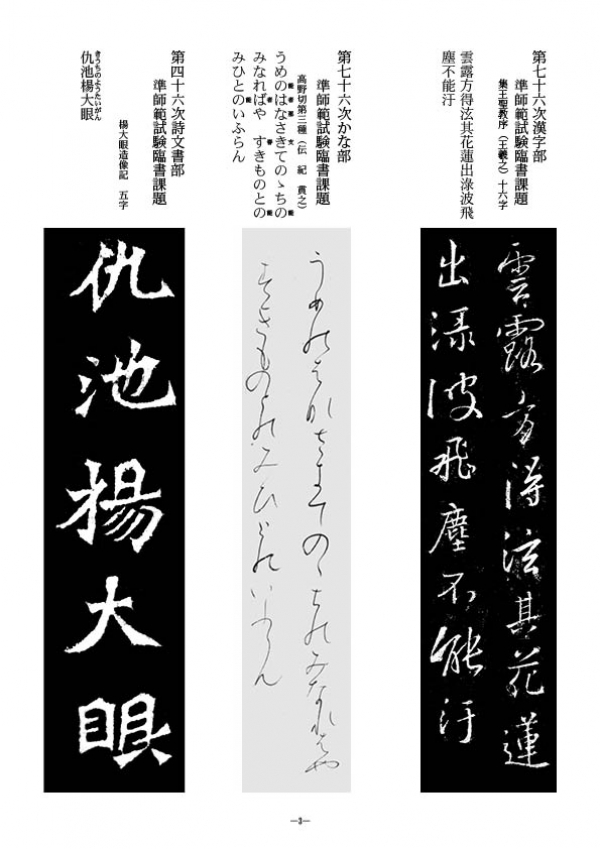 第七十六次漢字部
準師範試験臨書課題
集王聖教序（王羲之）十六字
雲露方得泫其花蓮出淥波飛
塵不能汙
雲露方得泫其花蓮
出淥波飛塵不能汙
第七十六次かな部
準師範試験臨書課題
高野切第三種（伝　紀　貫之）
うめのはなさきてのゝちの
みなればや　すきものとの
みひとのいふらん
うめのはなさきてのゝちのみなればや
すきものとのみひとのいふらん
第四十六次詩文書部
準師範試験臨書課題
楊大眼造像記　五字
きうちのようたいがん
仇池楊大眼
仇池楊大眼
―3―